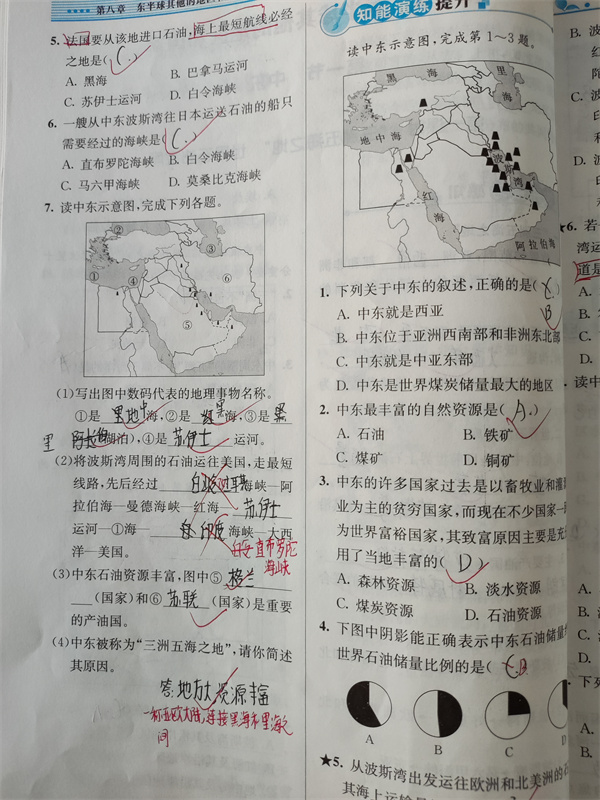 第八章 东半球其他的地
5. 法国要从该地进口石油,海上最短航线必经
之地是(C.)
A. 黑海 B. 巴拿马运河
C. 苏伊士运河 D. 白令海峡
6. 一艘从中东波斯湾往日本运送石油的船只
需要经过的海峡是(C.)
A. 直布罗陀海峡 B. 白令海峡
C. 马六甲海峡 D. 莫桑比克海峡
7. 读中东示意图,完成下列各题。
② ③ ① ④ ⑥ ⑤
(1)写出图中数码代表的地理事物名称。
①是 地中海,②是 黑海,③是
里 (湖泊),④是 苏伊士 运河。
(2)将波斯湾周围的石油运往美国,走最短
线路,先后经过 海峡—阿
拉伯海—曼德海峡—红海— 苏伊士
运河—①海— 海峡—大西
洋—美国。
直布罗陀
海峡
(3)中东石油资源丰富,图中⑤
(国家)和⑥ 苏联 (国家)是重要
的产油国。
(4)中东被称为“三洲五海之地”,请你简述
其原因。
答:地方大资源丰富
间
知能演练 提升
读中东示意图,完成第1~3题。
黑 海
里 海
地中海
波斯湾
红 海
阿拉伯海
1. 下列关于中东的叙述,正确的是(
B
A. 中东就是西亚
B. 中东位于亚洲西南部和非洲东北部
C. 中东就是中亚东部
D. 中东是世界煤炭储量最大的地区
2. 中东最丰富的自然资源是(A.)
A. 石油 B. 铁矿
C. 煤矿 D. 铜矿
3. 中东的许多国家过去是以畜牧业和灌
业为主的贫穷国家,而现在不少国家一
为世界富裕国家,其致富原因主要是充
用了当地丰富的(D)
A. 森林资源 B. 淡水资源
C. 煤炭资源 D. 石油资源
4. 下图中阴影能正确表示中东石油储量
世界石油储量比例的是(
A B C D
★5. 从波斯湾出发运往欧洲和北美洲的石
其海上运输
★6.
湾运
道是
读中
下列